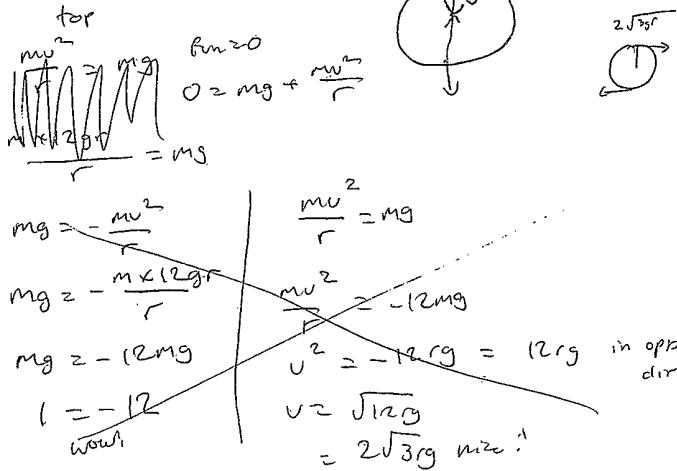 top
mv² / r = mg
0 = mg + mv² / r
m × 12gr / r = mg
2√3gr
mg = - mv² / r
mg = - m×12gr / r
mg = -12mg
1 = -12
mv² / r = mg
mv² / r = -12mg
v² = -12rg = 12rg in opp
dir
v = √12rg
= 2√3rg